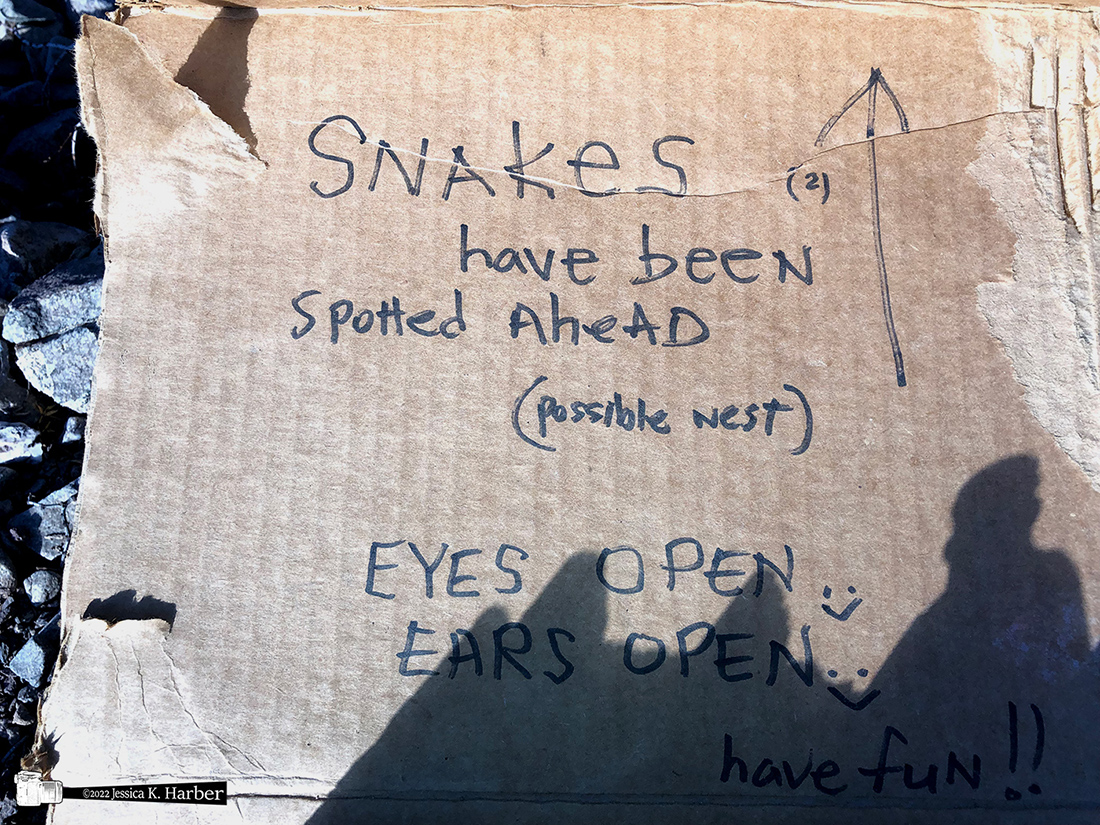 SNAKES (2)
have been
Spotted AheAD
(possible Nest)
EYES OPEN
EARS OPEN
have fuN!!
©2022 Jessica K. Harber